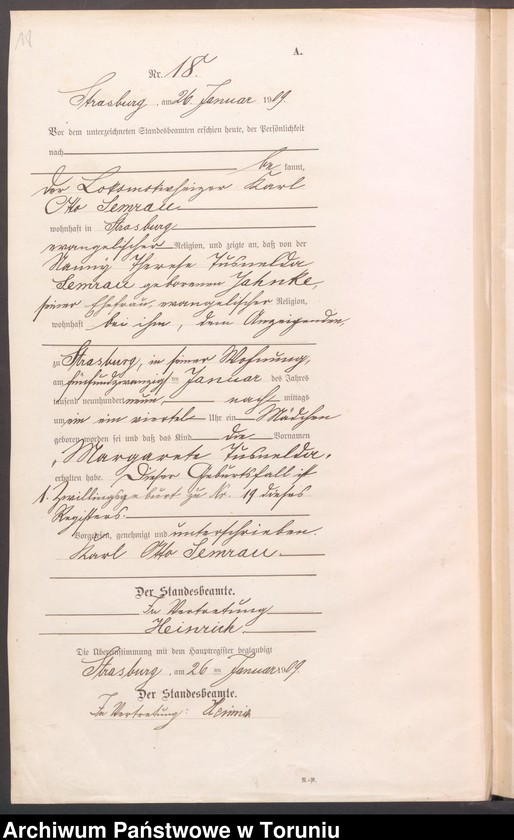 18
A.
Nr. 18.
Strasburg, am 26. Januar 1909.
Vor dem unterzeichneten Standesbeamten erschien heute, der Persönlichkeit
nach
be kannt,
der Lokomotivheizer Karl
Otto Semrau
wohnhaft in Strasburg
evangelischer Religion, und zeigte an, daß von der
Nanny Therese Tusnelda
Semrau geborenen Jahnke,
seiner Ehefrau, evangelischer Religion,
wohnhaft bei ihm, dem Anzeigenden,
zu Strasburg, in seiner Wohnung,
am fünfundzwanzigsten Januar des Jahres
tausend neunhundert neun, nach mittags
um ein ein viertel Uhr ein Mädchen
geboren worden sei und daß das Kind die Vornamen
"Margarete Tusnelda"
erhalten habe. Dieser Geburtsfall ist
1. Zwillingsgeburt zu Nr. 19 dieses
Registers.
Vorgelesen, genehmigt und unterschrieben.
Karl Otto Semrau
Der Standesbeamte.
In Vertretung
Heinrich.
Die Übereinstimmung mit dem Hauptregister beglaubigt
Strasburg, am 26 ten Januar 1909.
Der Standesbeamte.
In Vertretung: Heinrich
Archiwum Państwowe w Toruniu